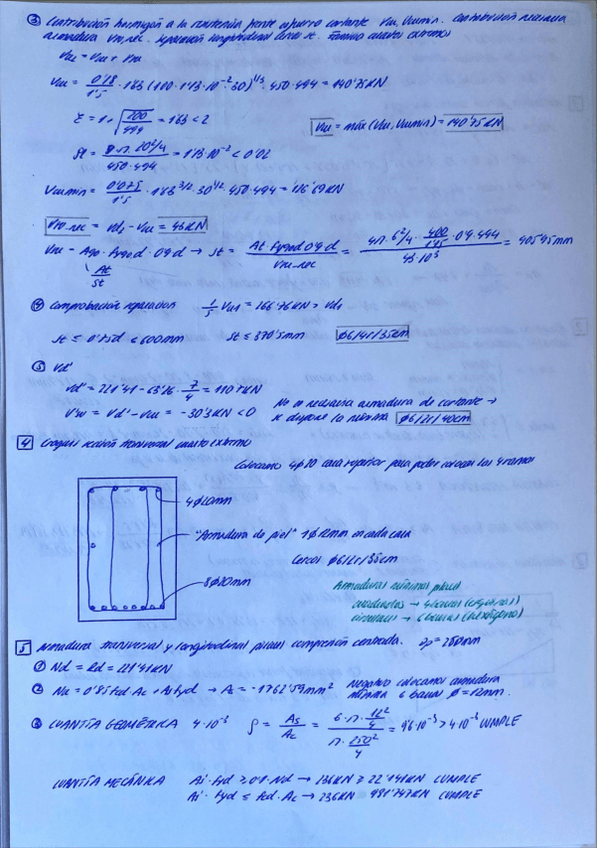 ③ Contribución hormigón a la resistencia frente esfuerzo cortante Vcu, Vcumin. Contribución necesaria
armadura Vsu,nec. Separación longitudinal cercos st. Tramos cuartos extremos
Vu2 = Vcu + Vsu
Vcu = 0'18/1'5 · 1'63 (100 · 1'13·10⁻² · 30)^1/3 · 450 · 494 = 140'75 KN
ξ = 1 + √(200/494) = 1'63 < 2
Vcu = máx (Vcu, Vcumin) = 140'75 KN
ρl = 8·π·20²/4 / 450·494 = 1'13·10⁻² < 0'02
Vcumin = 0'075/1'5 · 1'63^3/2 · 30^1/2 · 450 · 494 = 126'69 KN
Vsu,nec = Vd2 - Vcu = 43 KN
Vsu = A90 · fy90d · 0'9d → st = At · fy90d · 0'9 d / Vsu,nec = 4π·6²/4 · 400/1'15 · 0'9 · 494 / 43·10³ = 405'95 mm
At/st
④ Comprobación separación 1/5 Vu1 = 266'76 KN > Vd2
st ≤ 0'75d < 600mm st ≤ 370'5mm ϕ6/4r/35cm
⑤ Vd'
Vd' = 221'41 - 63'26 · 7/4 = 110'7 KN
V'su = Vd' - Vcu = -30'3 KN < 0
No es necesaria armadura de cortante →
se dispone la mínima ϕ6/2r/40cm
4 Croquis sección transversal cuarto extremo
Colocamos 4ϕ20 cara superior para poder colocar las 4 ramas
4ϕ20mm
"Armadura de piel" 1ϕ12mm en cada cara
Cercos ϕ6/2r/35cm
8ϕ20mm
Armaduras mínimas pilares
cuadrados → 4 barras (esquinas)
circulares → 6 barras (hexágono)
5 Armadura transversal y longitudinal pilares compresión centrada. ϕp = 250mm
① Nd = Rd = 221'41 KN
② Nu = 0'85 fcd · Ac + As fyd → As = -1762'59 mm² Negativo colocamos armadura
mínima 6 barras ϕ = 12mm.
③ CUANTÍA GEOMÉTRICA 4·10⁻³ ρ = As/Ac = 6·π·12²/4 / π·250²/4 = 9'6·10⁻³ > 4·10⁻³ CUMPLE
CUANTÍA MECÁNICA Ai · fyd ≥ 0'1·Nd → 236 KN ≥ 22'141 KN CUMPLE
Ai · fyd ≤ fcd · Ac → 236 KN 981'747 KN CUMPLE